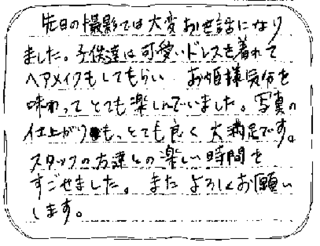 先日の撮影では大変お世話になり
ました。子供達は可愛いドレスを着れて
ヘアメイクもしてもらい お姫様気分を
味わって とても楽しんでいました。写真の
仕上がりも、とても良く 大満足です。
スタッフの方達との楽しい時間を
すごせました。また よろしくお願い
します。